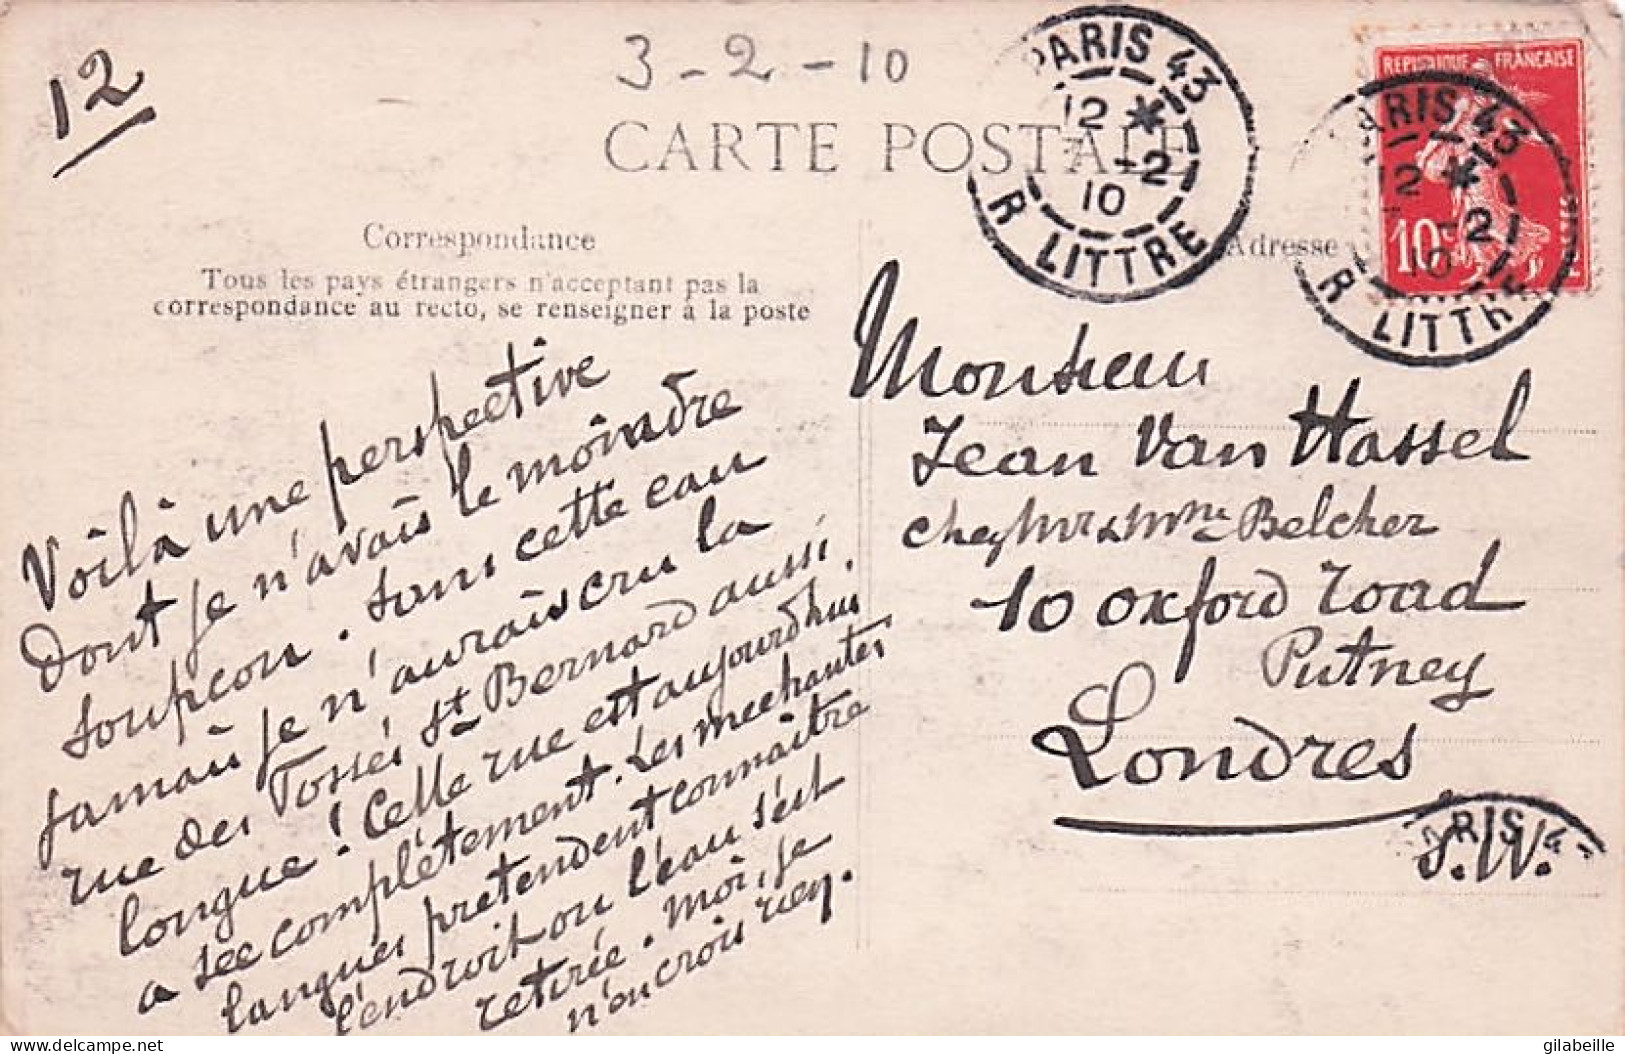 12
3-2-10
CARTE POSTALE
PARIS 43
12 * 13
-2
10
R LITTRE
REPUBLIQUE FRANÇAISE
10c
POSTES
PARIS 43
12 * 13
-2
10
R LITTRE
Correspondance
Tous les pays étrangers n'acceptant pas la
correspondance au recto, se renseigner à la poste
Adresse
Voilà une perspective
dont je n'avais le moindre
soupçon. Sans cette eau
jamais je n'aurais cru la
rue des Fossés St Bernard aussi
longue! Cette rue est aujourd'hui
a sec complètement. Les mechantes
langues pretendent connaitre
l'endroit ou l'eau s'est
retirée. Moi, je
n'en crois rien.
Monsieur
Jean Van Hassel
chez Mr & Mme Belcher
10 Oxford road
Putney
Londres
S.W.
PARIS 4
delcampe.net
gilabeille